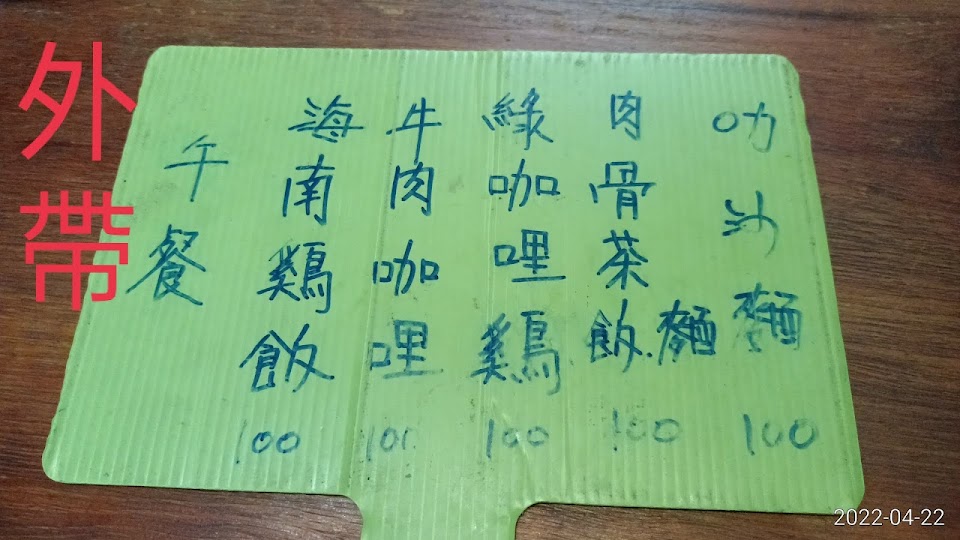 外帶
午餐
海南鷄飯 100
牛肉咖哩 100
綠咖哩鷄 100
肉骨茶飯.麵 100
叻沙麵 100
2022-04-22